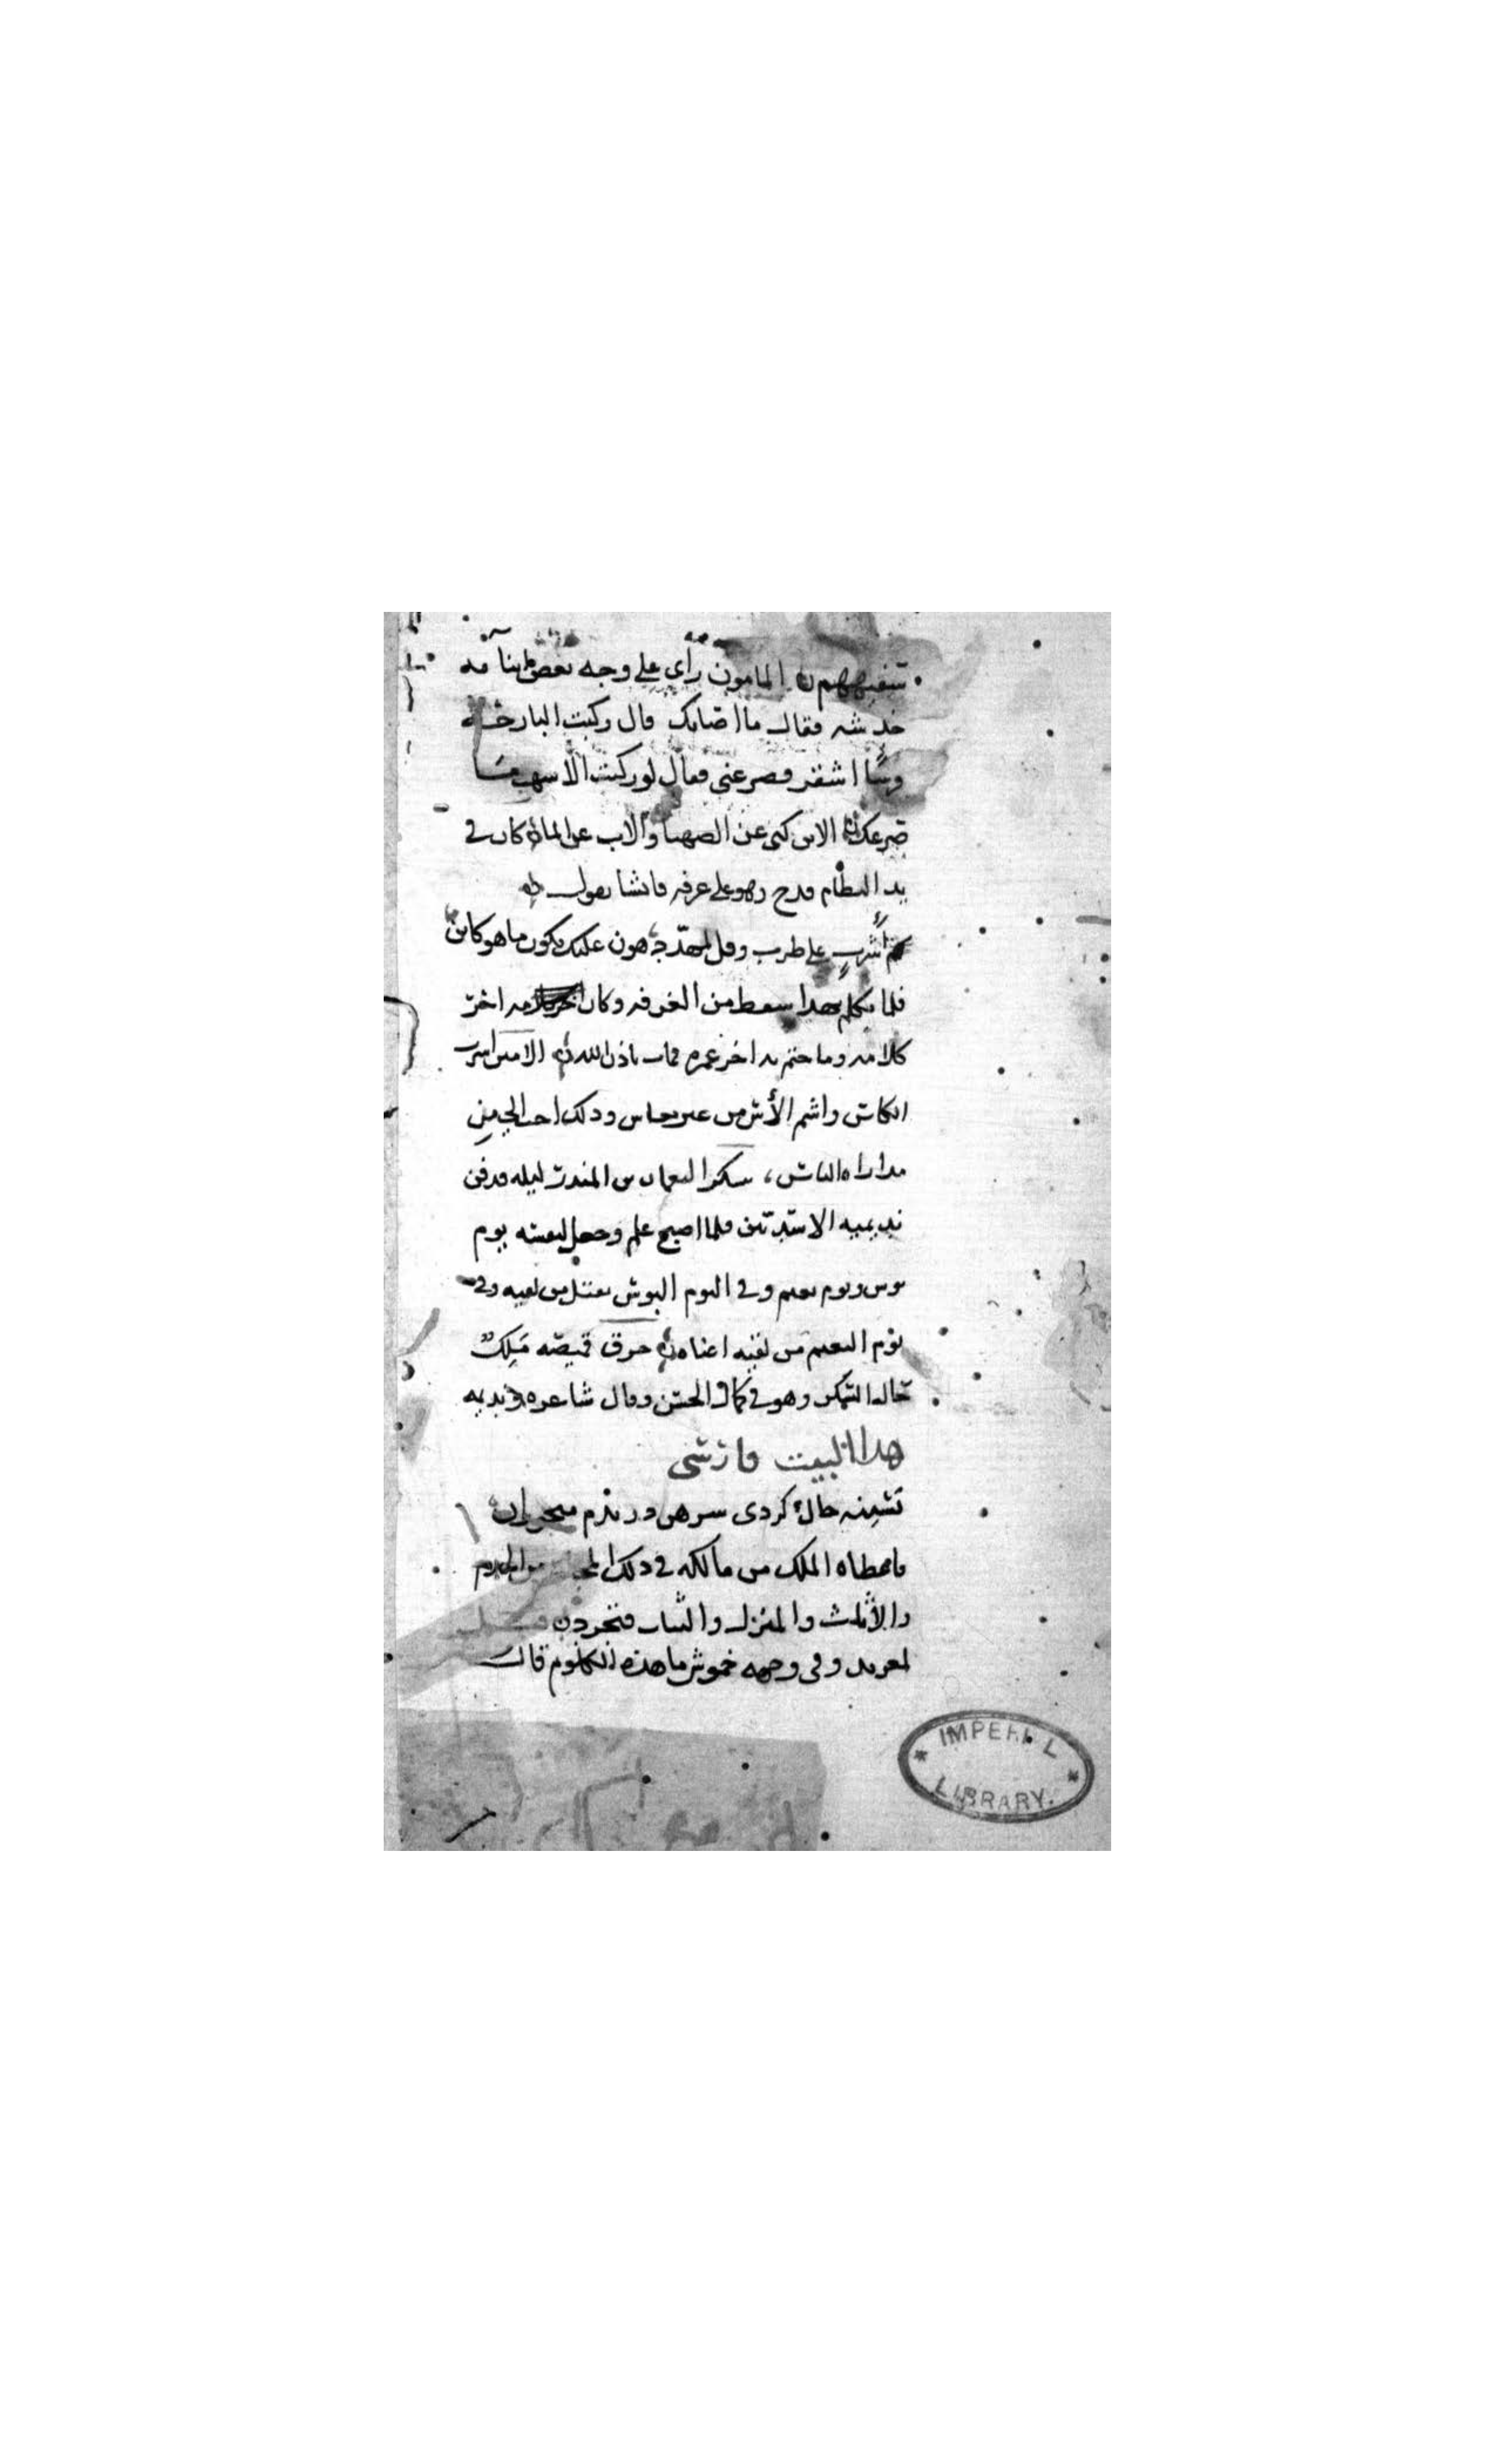 سفيههم المامون رأى على وجه بعض ابنائه
خدشه فقال ما اصابك قال ركبت البارحه
فرسًا اشقر فصرعنى فقال لو ركبت الاشهب ما
صرعك الابن كنى عن الصهبا والاب عن الماء كان في
يد النظام قدح وهو على غرفه فانشا يقول
اشرب على طرب وقل لمهدد هون عليك يكون ما هو كاين
فلما تكلم بهذا سقط من الغرفه وكان اخر
كلامه وما ختم به اخر عمره فمات باذن الله الامين اشرب
الكاس واشم الأس من غير نعاس وذلك احب الى من
مداراه الناس، سكر النعمان بن المنذر ليله فدفن
نديميه الاسديين فلما اصبح علم وجعل لنفسه يوم
بوس ويوم نعيم وفي اليوم البوس يقتل من لقيه وفي
يوم النعيم من لقيه اغناه خرق قميصه ملك
حاله السكر وهو في كمال الحسن وقال شاعره ونديمه
هذا البيت فارسى
كردى در بزم
فاعطاه الملك من مالكه في ذلك
والأثاث والمنزل والثياب
لمعربد وفى وجهه خموش ما هذه الكلوم قال
IMPERIAL
LIBRARY.